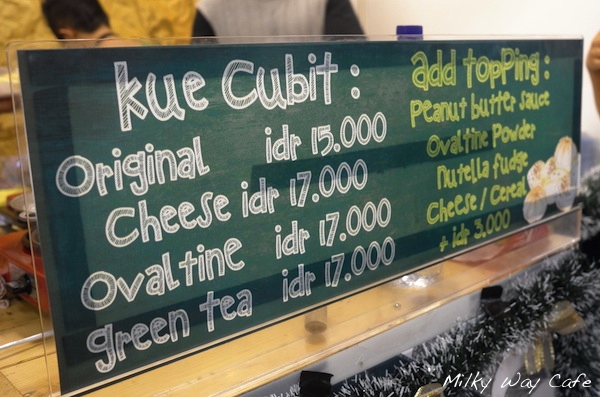 kue Cubit :
Original idr 15.000
Cheese idr 17.000
Ovaltine idr 17.000
green tea idr 17.000
add topping :
Peanut butter sauce
Ovaltine Powder
nutella fudge
Cheese / Cereal
+ idr 3.000
Milky Way Cafe